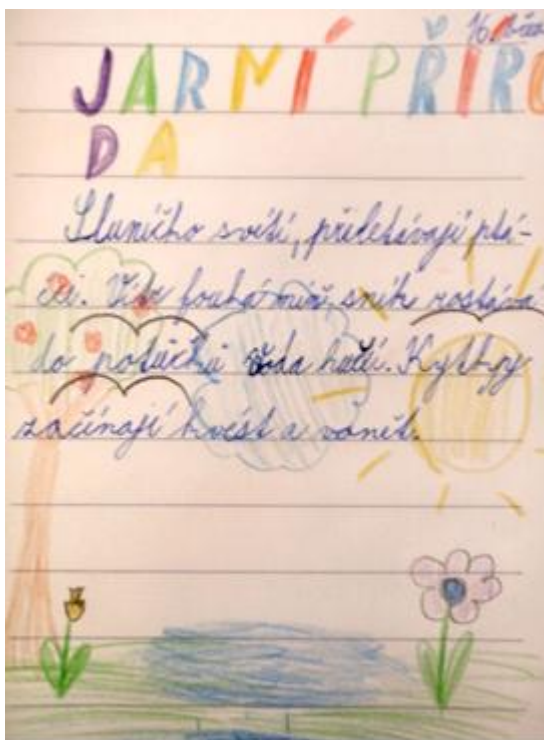 16. břez
JARNÍ PŘÍRO
DA
Sluníčko svítí, přiletávají ptá-
ci. Vítr fouká míň, sníh rostává
do potůčků voda hučí. Kytky
začínají kvést a vonět.